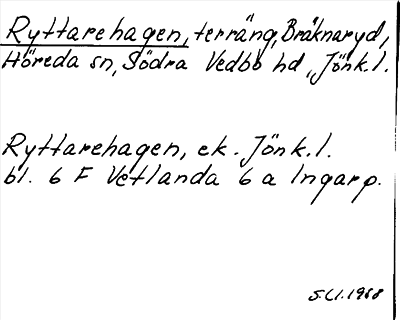 Ryttarehagen, terräng, Bråknaryd,
Höreda sn, Södra Vedbo hd, Jönk.l.
Ryttarehagen, ek. Jönk.l.
bl. 6 F Vetlanda 6 a Ingarp.
1968